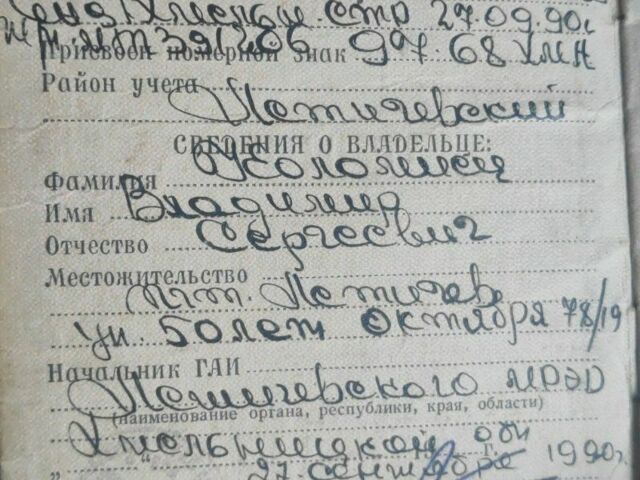 стр 27.09.90г
97-68 ХМН
Присвоен номерной знак
Район учета
Летичевский
СВЕДЕНИЯ О ВЛАДЕЛЬЦЕ:
Фамилия
Имя Владимир
Отчество Сергеевич
Местожительство
пгт. Летичев
ул. 50 лет Октября 78/19
Начальник ГАИ
Летичевского МРЭО
(наименование органа, республики, края, области)
Хмельницкой обл
„ “ г.
27 сентября 1990г